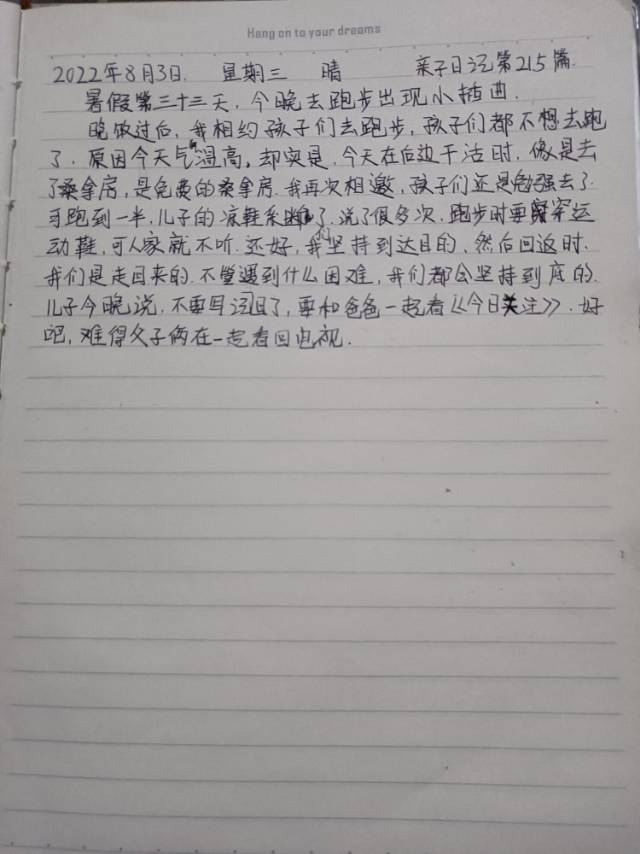 Hang on to your dreams
2022年8月3日. 星期三 晴 亲子日记第215篇.
暑假第三十三天，今晚去跑步出现小插曲.
晚饭过后，我相约孩子们去跑步，孩子们都不想去跑
了. 原因今天气温高，却实是，今天在后边干活时，像是去
了桑拿房，是免费的桑拿房. 我再次相邀，孩子们还是勉强去了.
可跑到一半，儿子的凉鞋系断了. 说了很多次，跑步时要穿运
动鞋，可人家就不听. 还好，我坚持到达目的，然后回返时.
我们是走回来的. 不管遇到什么困难，我们都会坚持到底的.
儿子今晚说，不要写词目了，要和爸爸一起看《今日关注》. 好
吧，难得父子俩在一起看回电视.